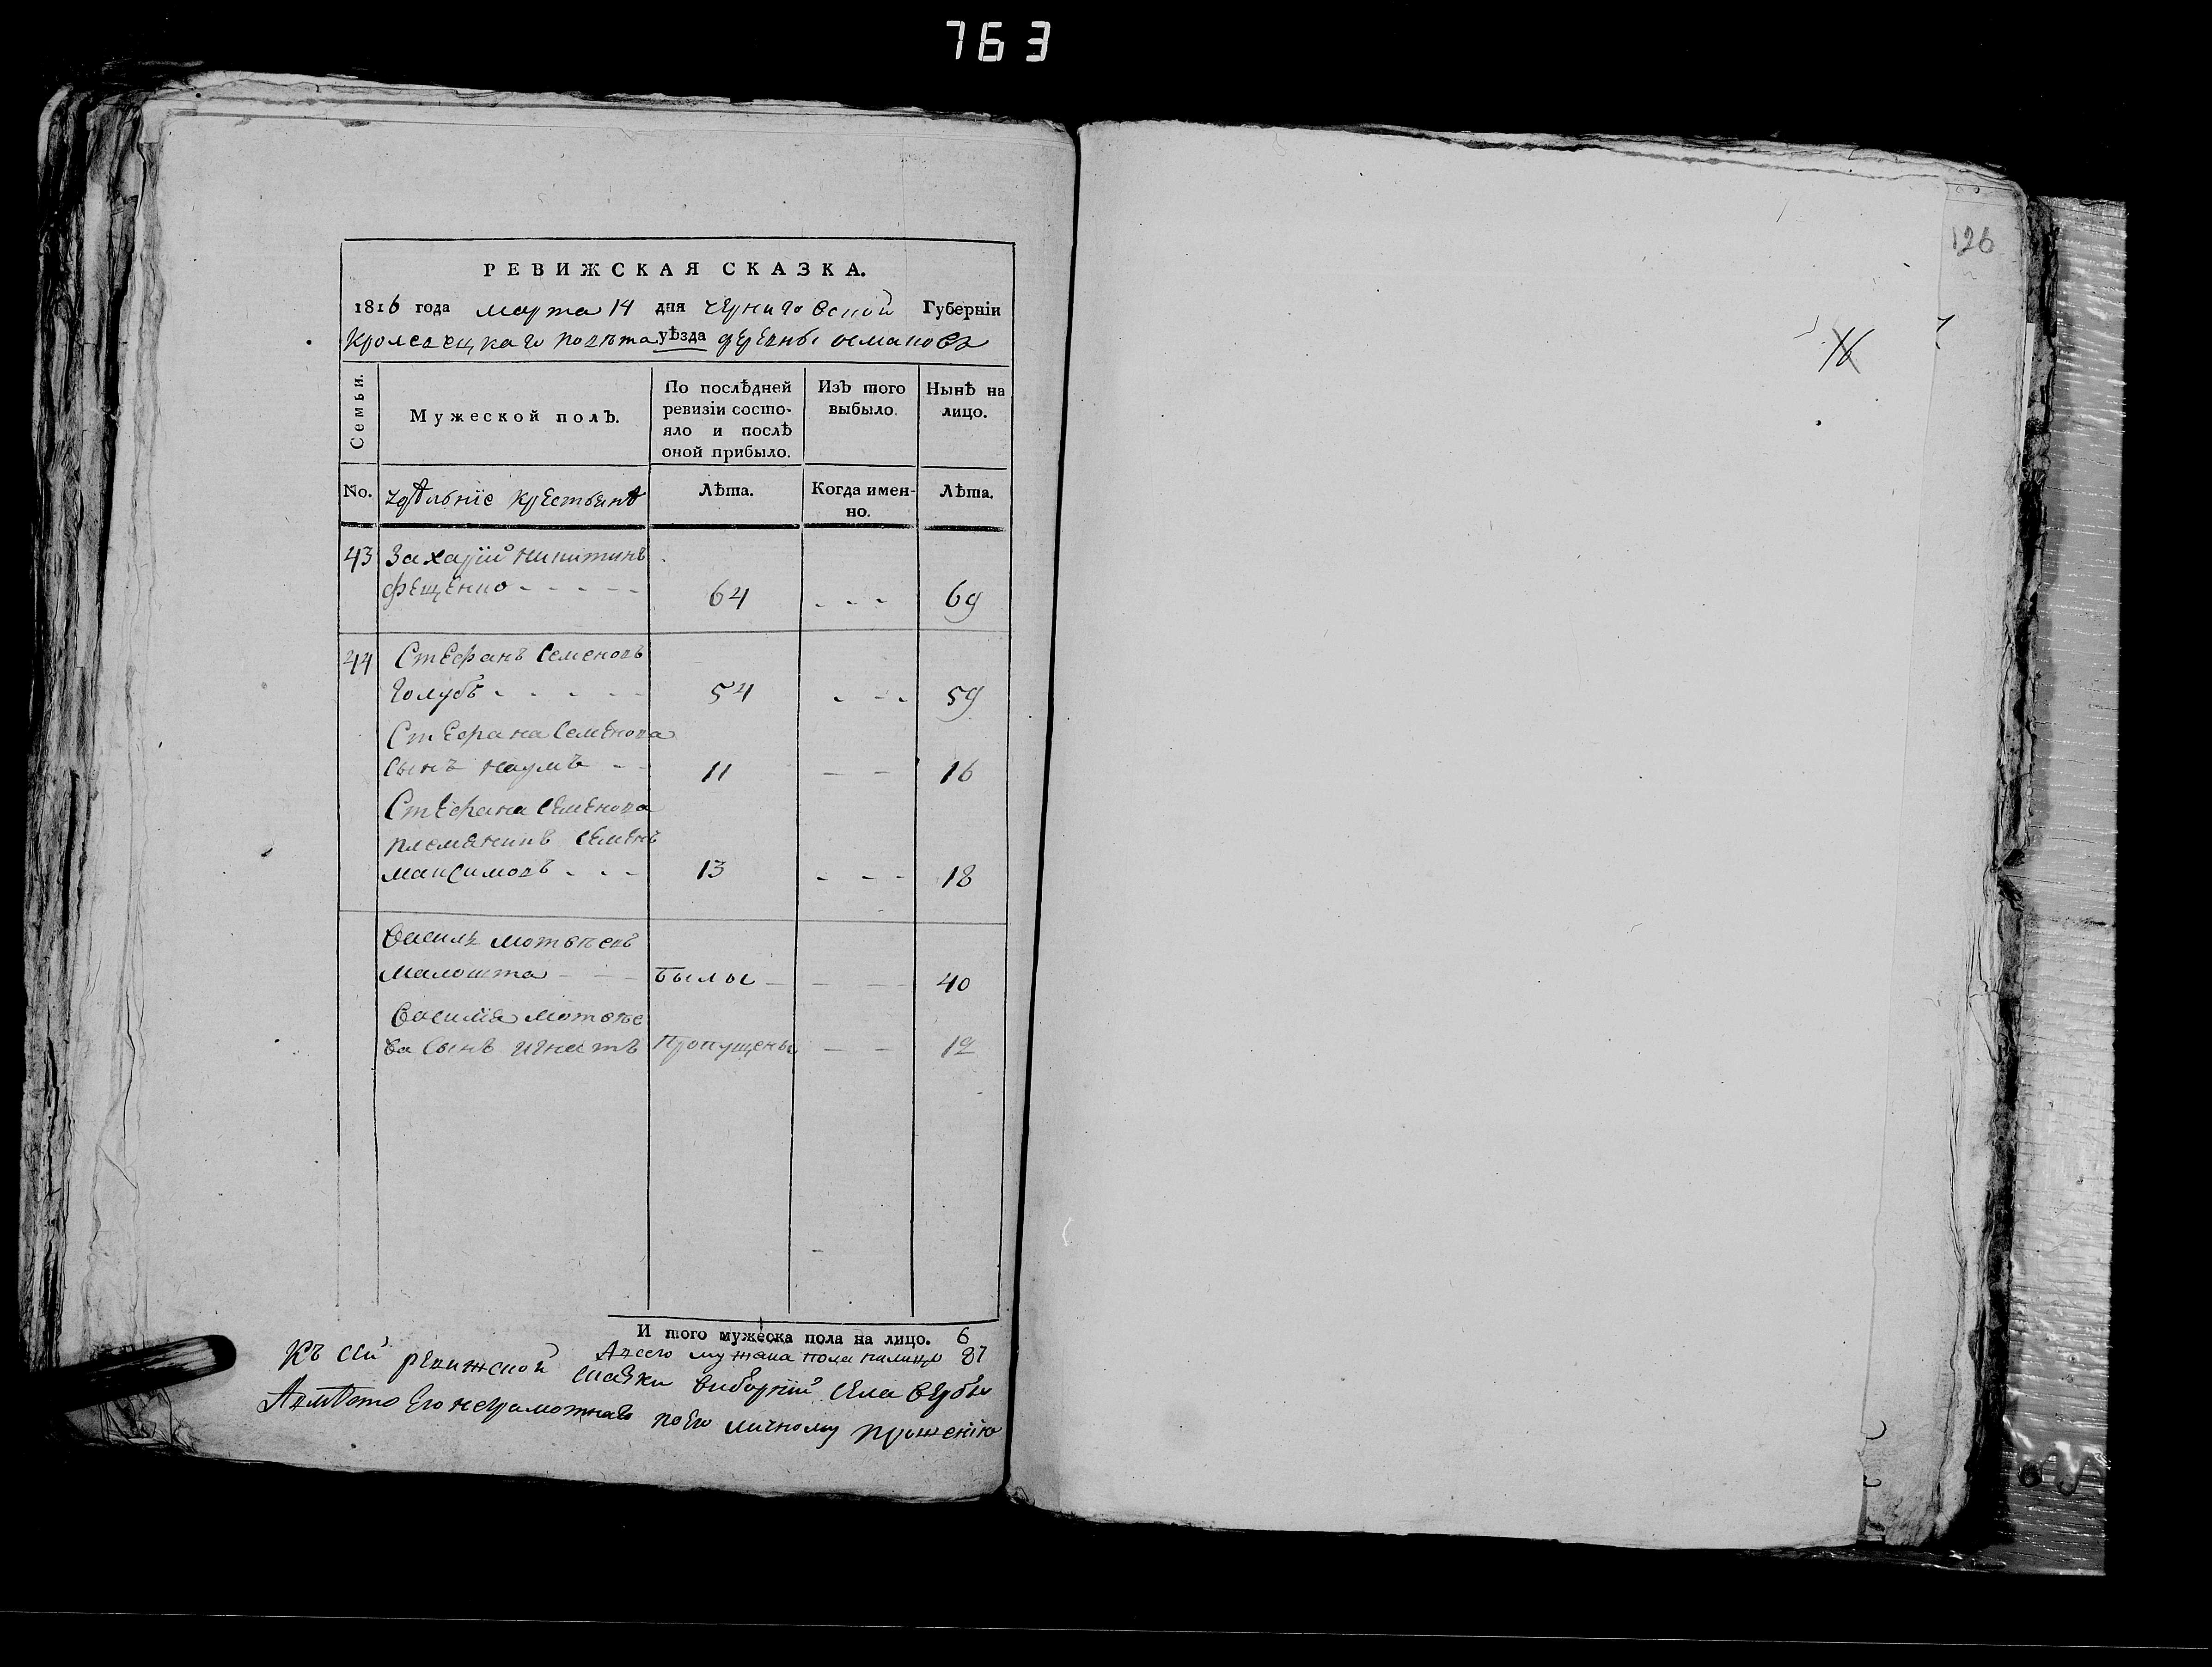 763
126
РЕВИЖСКАЯ СКАЗКА.
1816 года марта 14 дня Черниговской Губерніи
Кролевецкаго повѣта уѣзда деревны османовъ
Семьи.
Мужеской полЪ.
По послѣдней ревизіи состояло и послѣ оной прибыло.
ИзЪ того выбыло.
Нынѣ на лицо.
No. удѣльніе крестьянѣ Лѣта. Когда именно. Лѣта.
43 Захарій никитинъ
фещенко - - - - - 64 - - - 69
44 Стефанъ Семеновъ
голубъ - - - - - 54 - - - 59
Стефана Семенова
сынъ наумъ - - 11 - - 16
Стефана Семенова
племяникъ Семенъ
максимовъ - - - 13 - - - 18
Василь мотвѣевъ
малошта - - - былы - - - - 40
Василія мотвѣе
ва сынъ игнатъ пропущены - - 12
И того мужеска пола на лицо. 6
Авсего мужска пола налицо 87
Къ сей ревижской сказки виборній села вербы
Авмѣсто его неграмотнаго поего личному прошенію